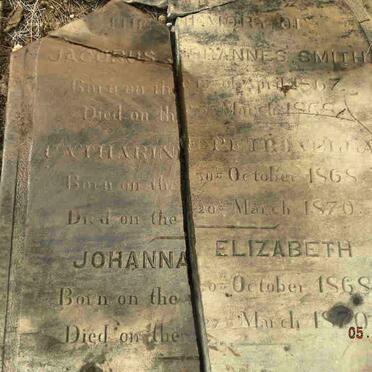 MEMORY OF
JACOBUS JOHANNES SMITH
Born on the of April 1867.
Died on the March 1868.
CATHARINA PETRONELLA
Born on the 30th October 1868
Died on the 20th March 1870.
JOHANNA ELIZABETH
Born on the October 1868
Died on the March 1870
05.